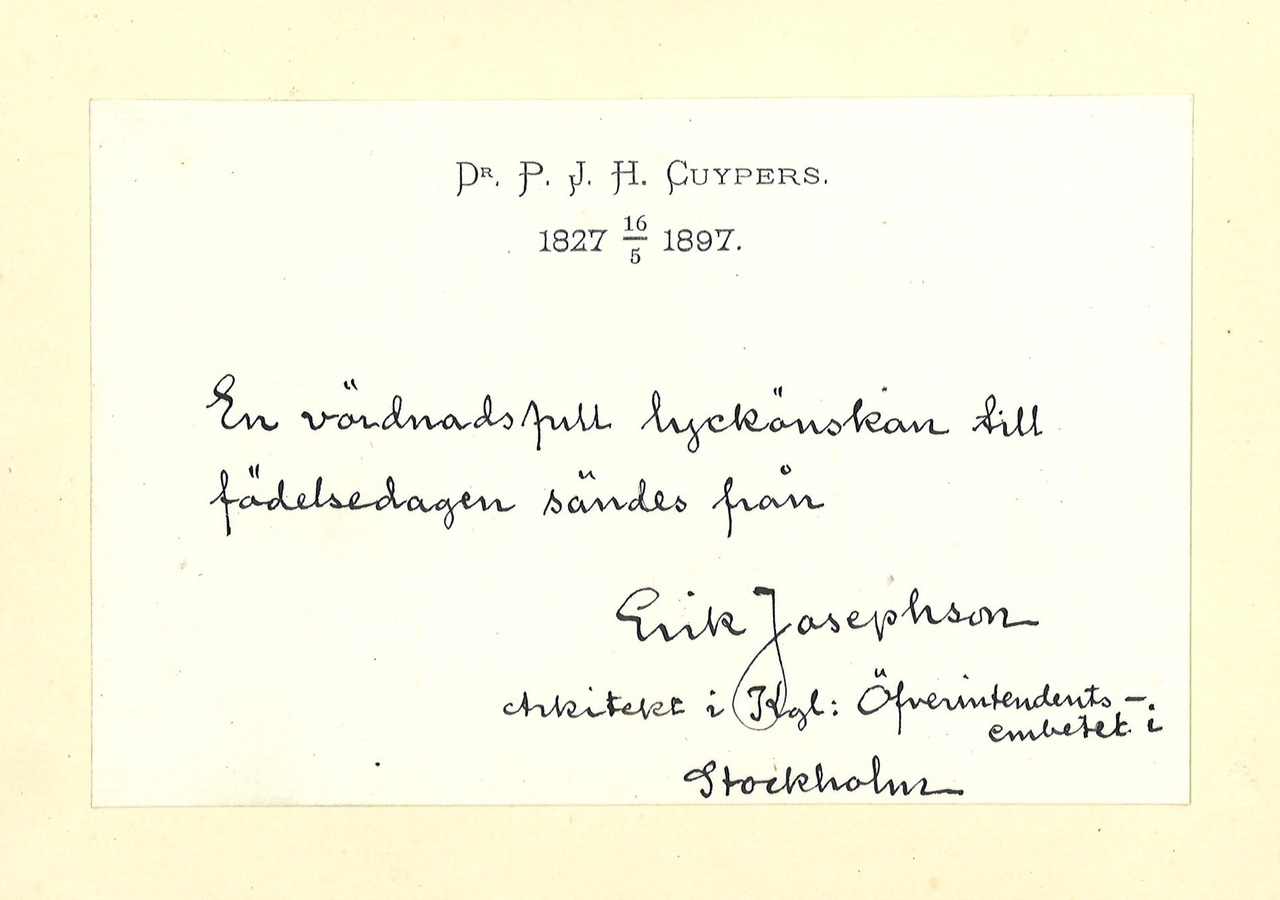 Dr. P. J. H. Cuypers.
1827 16/5 1897.
En vördnadsfull lyckönskan till
födelsedagen sändes från
Erik Josephson
Arkitekt i Kgl: Öfverintendents-
embetet i
Stockholm